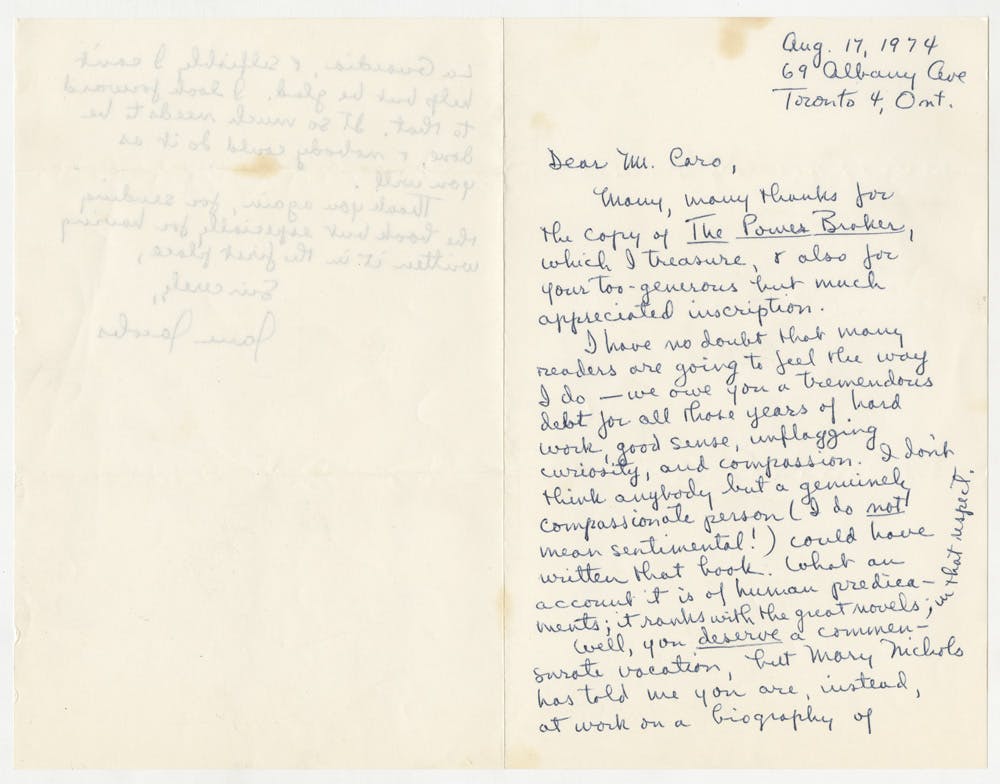 Aug. 17, 1974
69 Albany Ave
Toronto 4, Ont.
Dear Mr. Caro,
Many, many thanks for
the copy of The Power Broker,
which I treasure, & also for
your too-generous but much
appreciated inscription.
I have no doubt that many
readers are going to feel the way
I do — we owe you a tremendous
debt for all those years of hard
work, good sense, unflagging
curiosity, and compassion. I don't
think anybody but a genuinely
compassionate person (I do not
mean sentimental!) could have
written that book. What an
account it is of human predica-
ments; it ranks with the great novels;
in that respect.
Well, you deserve a commen-
surate vacation, but Mary Nichols
has told me you are, instead,
at work on a biography of
La Guardia, & selfishly I can't
help but be glad. I look forward
to that. It so much needs to be
done, & nobody could do it as
you will.
Thank you again, for sending
the book but especially for having
written it in the first place,
Sincerely,
Jane Jacobs